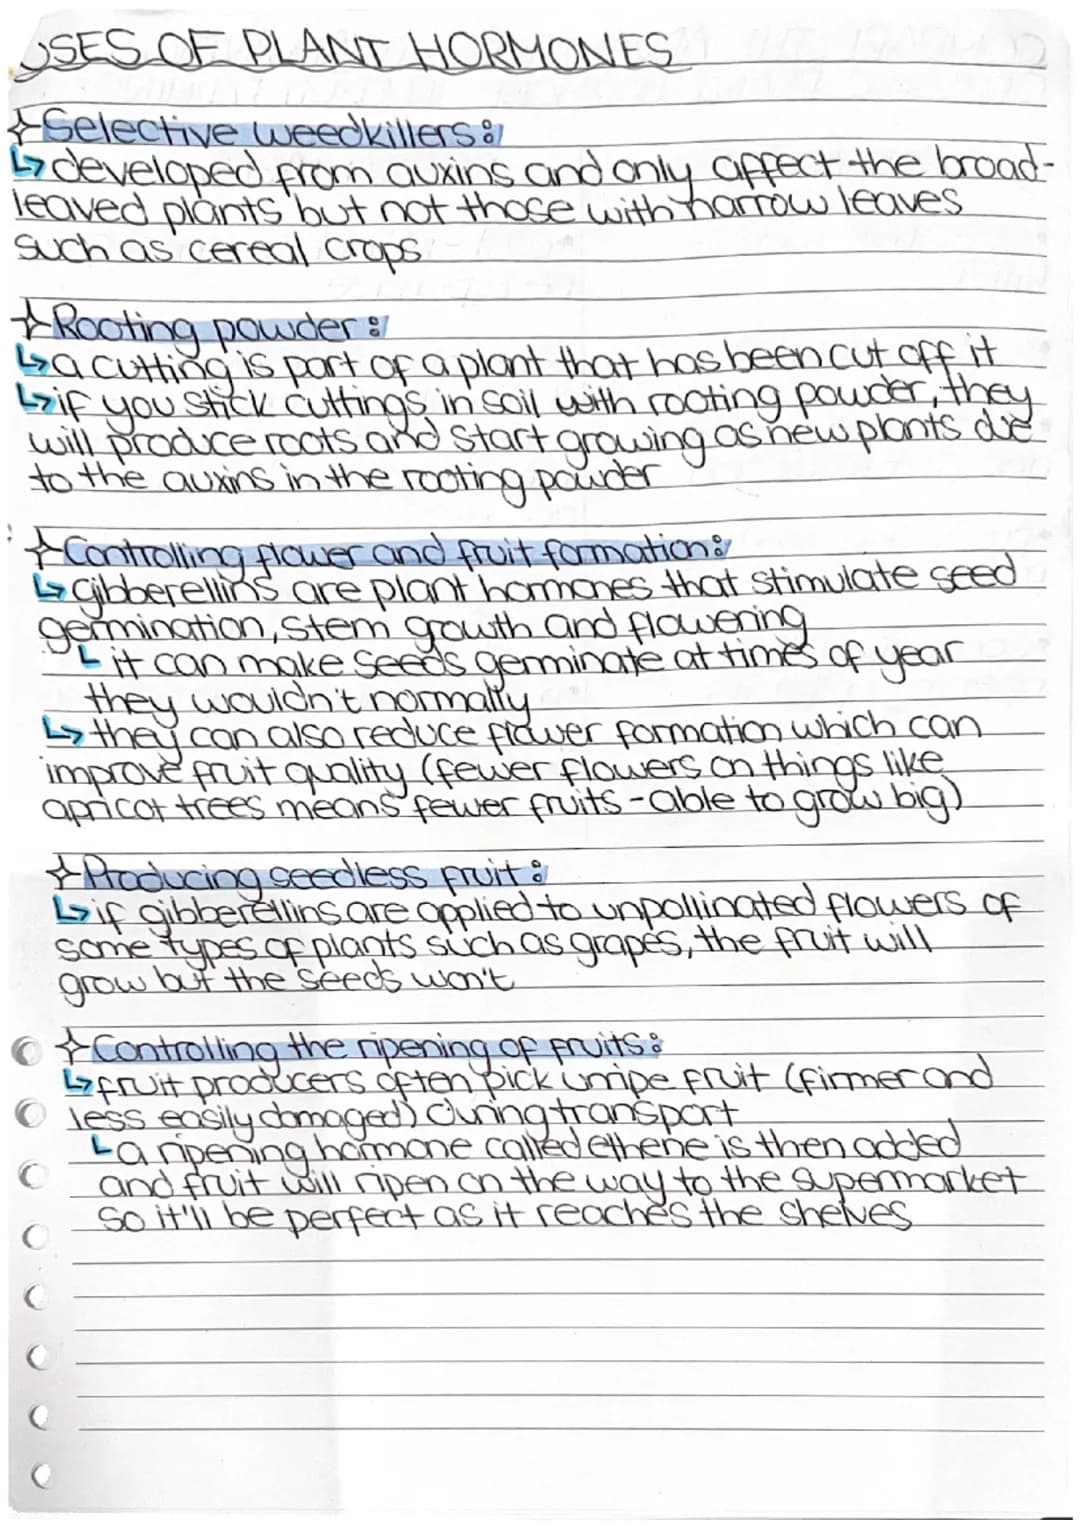 USES OF PLANT HORMONES
Selective weedkillers:
developed from auxins and only affect the broad-
leaved plants but not those with narrow leaves
such as cereal crops
Rooting powder:
a cutting is part of a plant that has been cut off it
if you stick cuttings in soil with rooting powder, they
will produce roots and start growing as new plants due
to the auxins in the rooting powder
Controlling flower and fruit formation:
gibberellins are plant hormones that stimulate seed
germination, stem growth and flowering
it can make seeds germinate at times of year
they wouldn't normally
they can also reduce flower formation which can
improve fruit quality (fewer flowers on things like
apricot trees means fewer fruits - able to grow big)
Producing seedless fruit:
if gibberellins are applied to unpollinated flowers of
some types of plants such as grapes, the fruit will
grow but the seeds won't
Controlling the ripening of fruits:
fruit producers often pick unripe fruit (firmer and
less easily damaged) during transport
a ripening hormone called ethene is then added
and fruit will ripen on the way to the supermarket
so it'll be perfect as it reaches the shelves